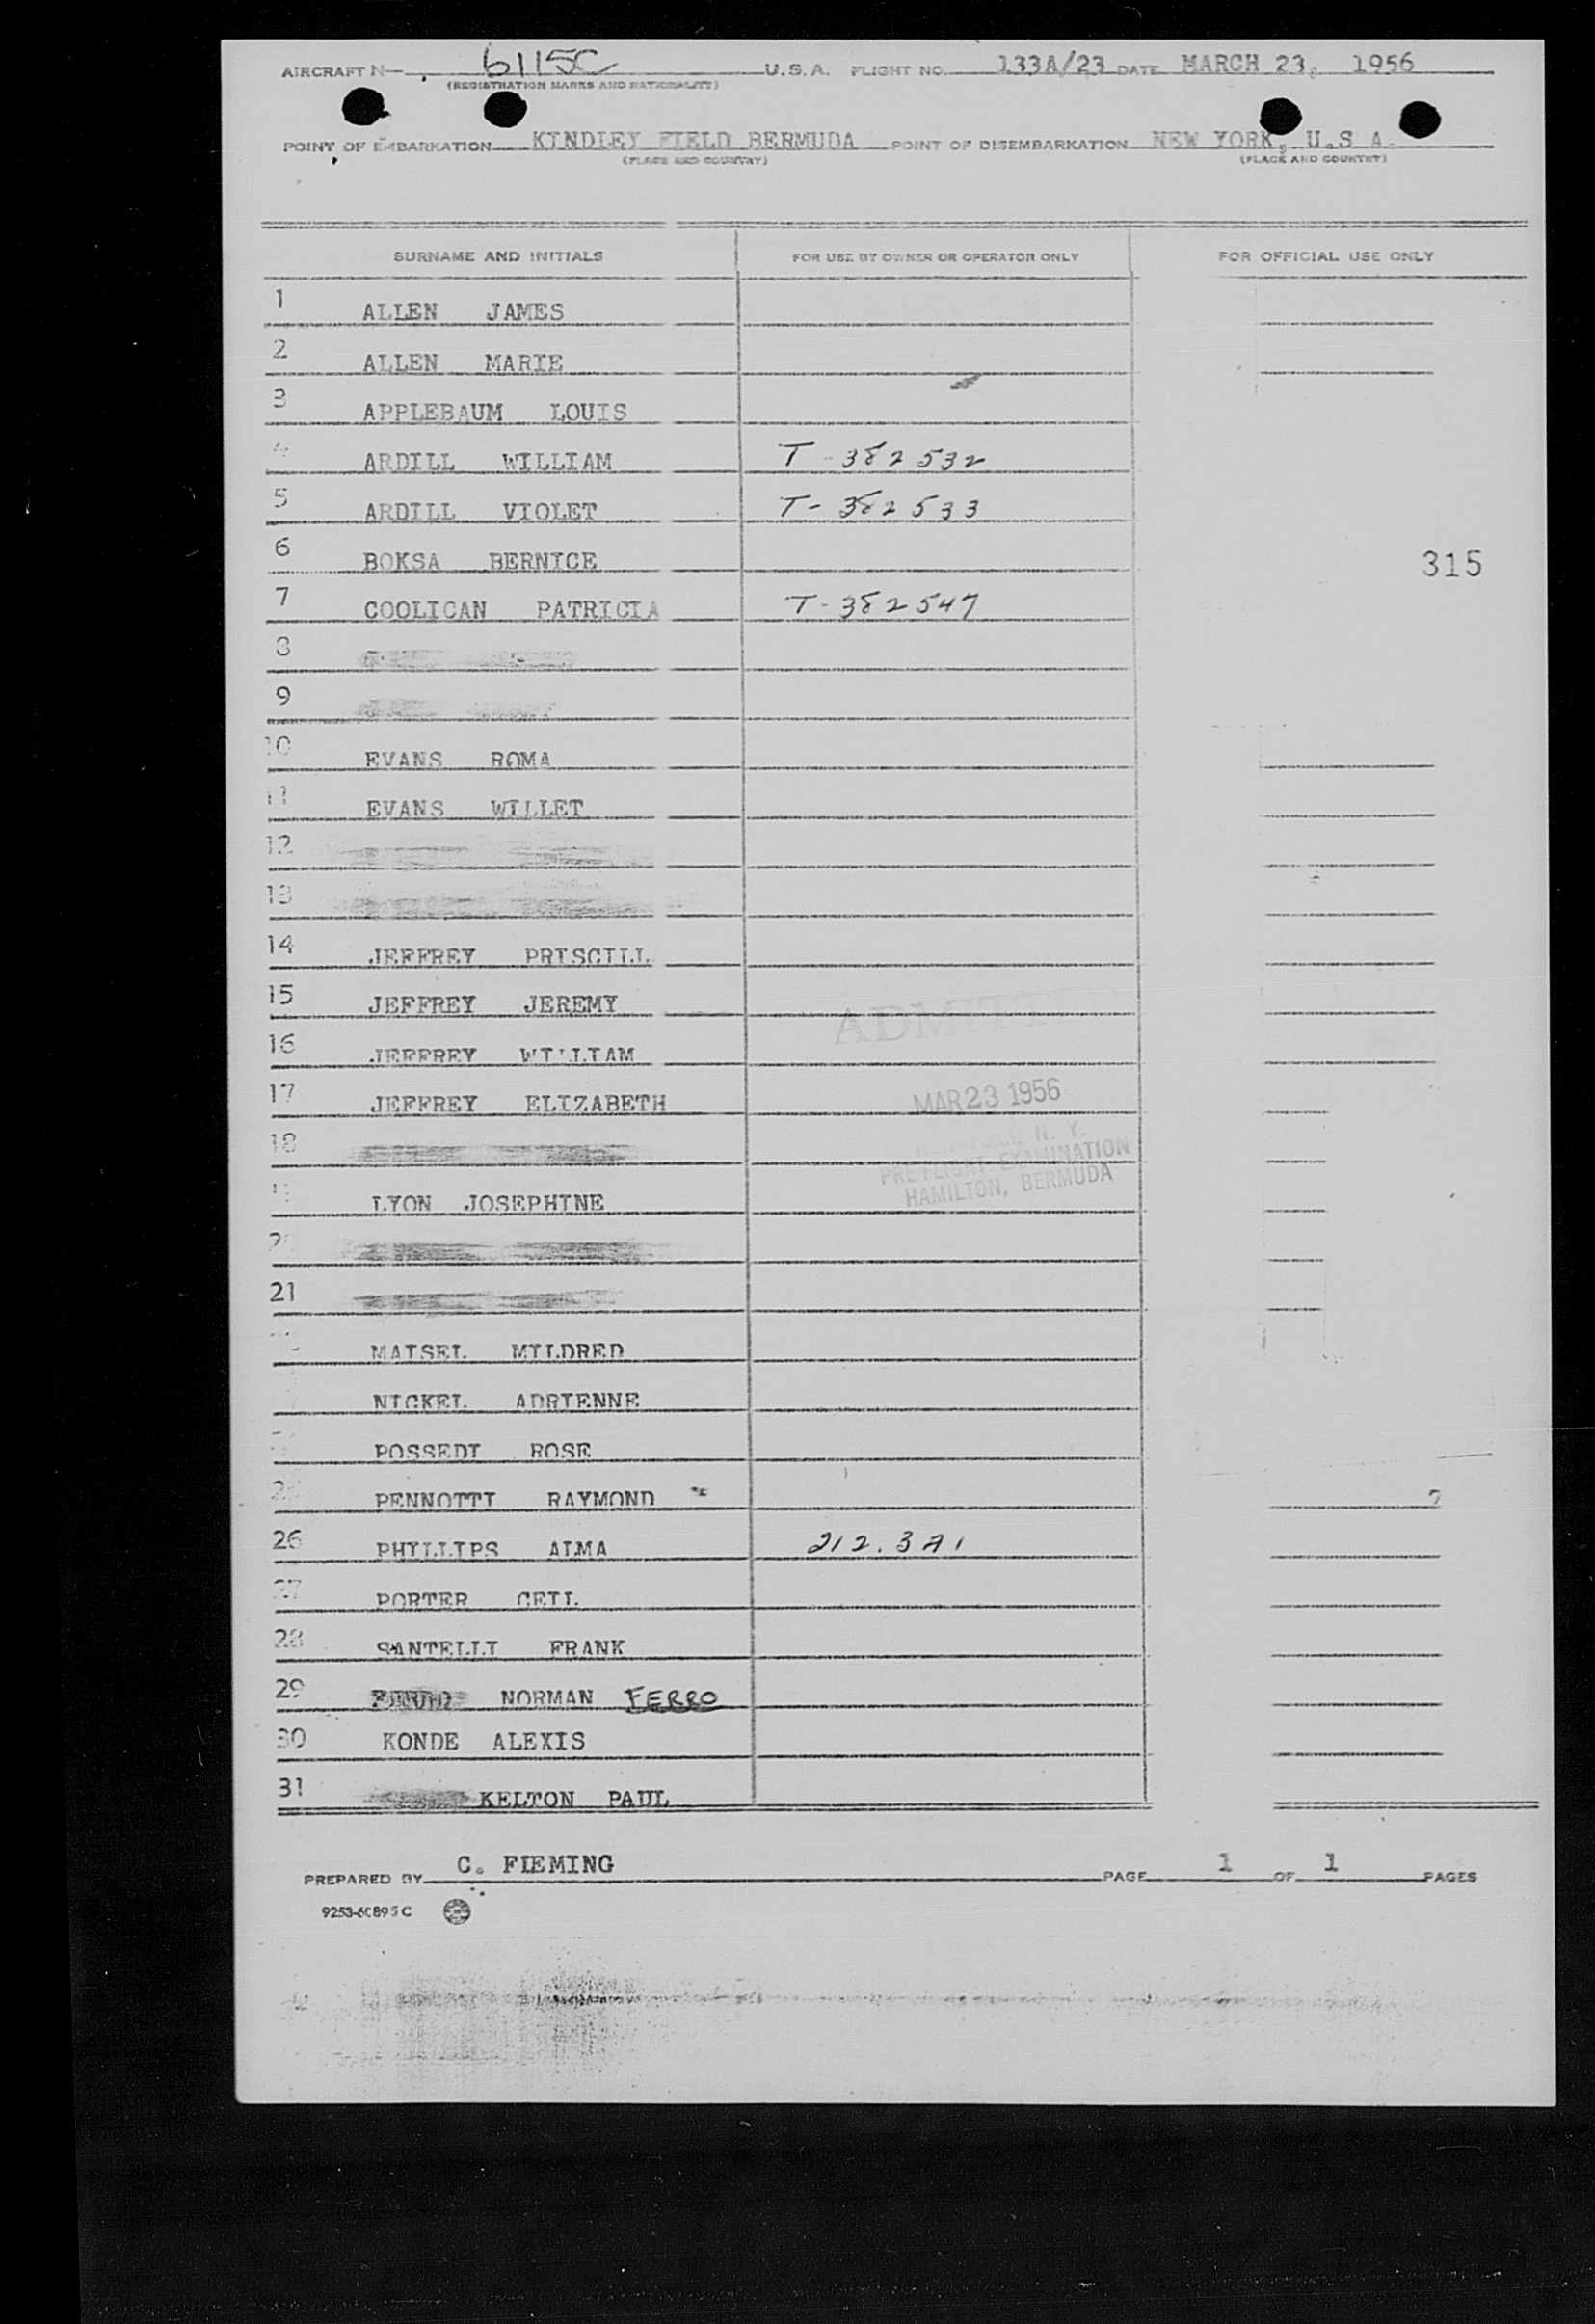 AIRCRAFT N— 6115C U.S.A. FLIGHT NO. 133A/23 DATE MARCH 23, 1956
(REGISTRATION MARKS AND NATIONALITY)
POINT OF EMBARKATION KINDLEY FIELD BERMUDA POINT OF DISEMBARKATION NEW YORK, U.S.A.
(PLACE AND COUNTRY) (PLACE AND COUNTRY)
SURNAME AND INITIALS FOR USE BY OWNER OR OPERATOR ONLY FOR OFFICIAL USE ONLY
1 ALLEN JAMES
2 ALLEN MARIE
3 APPLEBAUM LOUIS
4 ARDILL WILLIAM T-382532
5 ARDILL VIOLET T-382533
6 BOKSA BERNICE 315
7 COOLICAN PATRICIA T-382547
8
9
10 EVANS ROMA
11 EVANS WILLET
12
13
14 JEFFREY PRISCILL
15 JEFFREY JEREMY
ADMITTED
16 JEFFREY WILLIAM
17 JEFFREY ELIZABETH MAR 23 1956
18 N. Y.
PREFLIGHT EXAMINATION
LYON JOSEPHINE HAMILTON, BERMUDA
21
MAISEL MILDRED
NICKEL ADRIENNE
POSSEDI ROSE
25 PENNOTTI RAYMOND
26 PHILLIPS ALMA 212.3A1
27 PORTER CEIL
28 SANTELLI FRANK
29 NORMAN FERRO
30 KONDE ALEXIS
31 KELTON PAUL
PREPARED BY C. FLEMING PAGE 1 OF 1 PAGES
9253-60895C